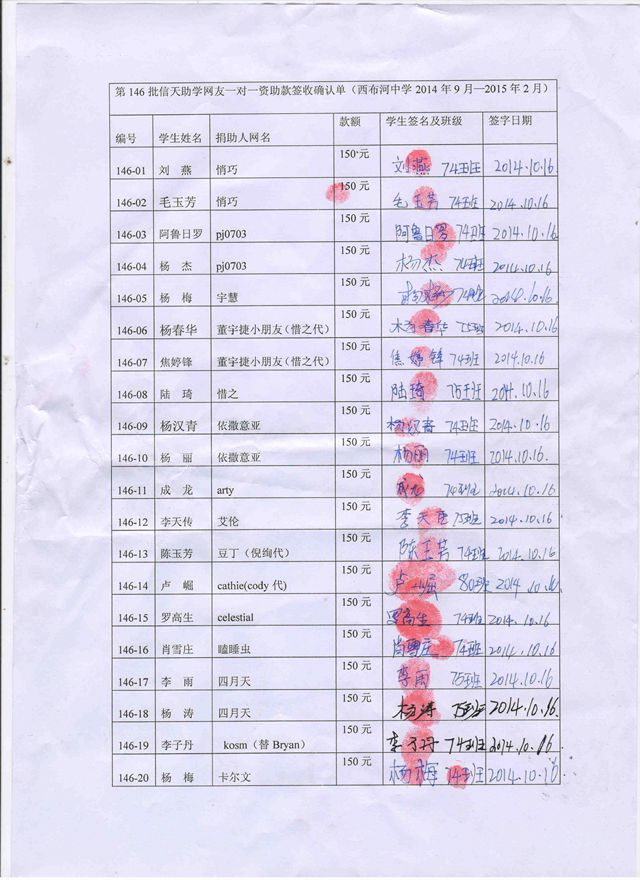 第 146 批信天助学网友一对一资助款签收确认单（西布河中学 2014 年 9 月—2015 年 2 月）
编号 学生姓名 捐助人网名 款额 学生签名及班级 签字日期
146-01 刘 燕 悄巧 150 元 刘燕 74班 2014.10.16
146-02 毛玉芳 悄巧 150 元 毛玉芳 74班 2014.10.16
146-03 阿鲁日罗 pj0703 150 元 阿鲁日罗 74班 2014.10.16
146-04 杨 杰 pj0703 150 元 杨杰 74班 2014.10.16
146-05 杨 梅 宇慧 150 元 杨梅 74班 2014.10.16
146-06 杨春华 董宇捷小朋友（惜之代） 150 元 杨春华 75班 2014.10.16
146-07 焦婷锋 董宇捷小朋友（惜之代） 150 元 焦婷锋 74班 2014.10.16
146-08 陆 琦 惜之 150 元 陆琦 75班 2014.10.16
146-09 杨汉青 依撒意亚 150 元 杨汉青 74班 2014.10.16
146-10 杨 丽 依撒意亚 150 元 杨丽 74班 2014.10.16.
146-11 成 龙 arty 150 元 成龙 74班 2014.10.16
146-12 李天传 艾伦 150 元 李天传 75班 2014.10.16
146-13 陈玉芳 豆丁（倪绚代） 150 元 陈玉芳 74班 2014.10.16
146-14 卢 崛 cathie(cody 代) 150 元 卢崛 80班 2014.10.16
146-15 罗高生 celestial 150 元 罗高生 74班 2014.10.16
146-16 肖雪庄 瞌睡虫 150 元 肖雪庄 74班 2014.10.16
146-17 李 雨 四月天 150 元 李雨 75班 2014.10.16
146-18 杨 涛 四月天 150 元 杨涛 75班 2014.10.16
146-19 李子丹 kosm（替 Bryan） 150 元 李子丹 74班 2014.10.16
146-20 杨 梅 卡尔文 150 元 杨梅 74班 2014.10.16